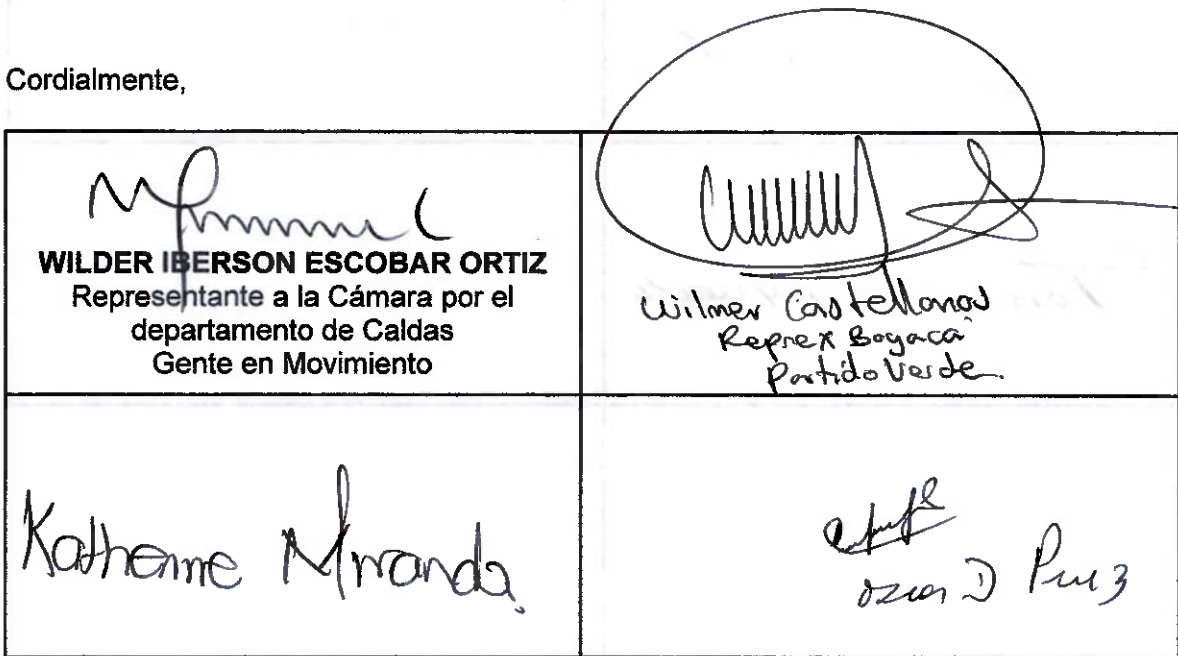 Cordialmente,
WILDER IBERSON ESCOBAR ORTIZ
Representante a la Cámara por el
departamento de Caldas
Gente en Movimiento
Wilmer Castellanos
Reprex Boyacá
Partido Verde.
Katherine Miranda
D